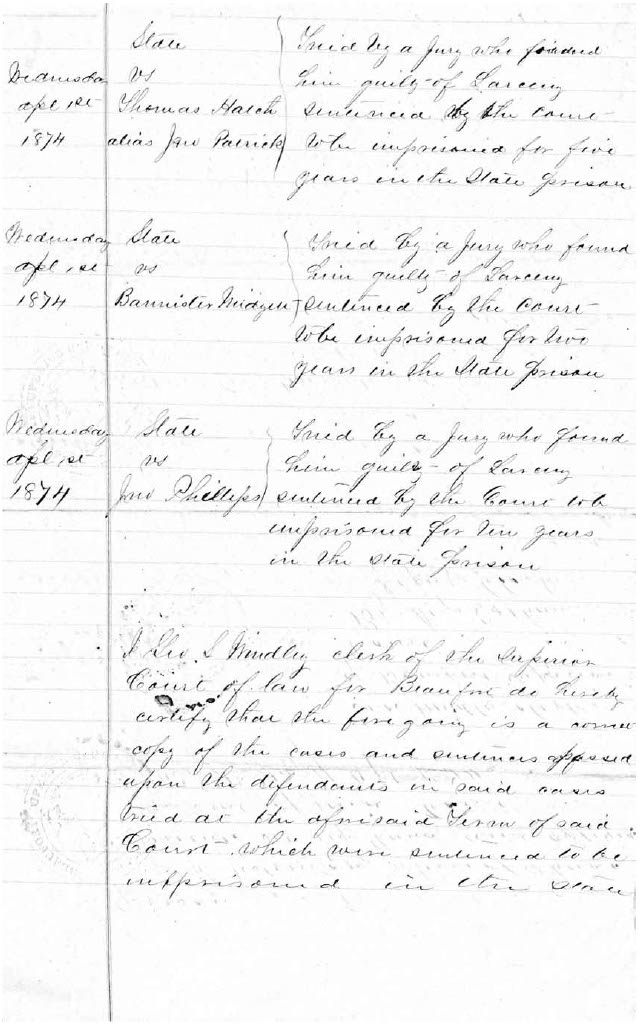 State Tried by a Jury who founed
Wednesday vs him guilty of Larceny
apl 1st Thomas Hatch sentenced by the Court
1874 alias Jno Patrick to be imprisoned for five
years in the State prison
Wednesday State Tried by a Jury who found
apl 1st vs him guilty of Larceny
1874 Bannister Midgett sentenced by the Court
to be imprisoned for two
years in the State prison
Wednesday State Tried by a Jury who found
apl 1st vs him guilty of Larceny
1874 Jno Phillips sentenced by the Court to be
imprisoned for ten years
in the State prison
I Geo L Windley clerk of the Superior
Court of law for Beaufort do hereby
certify that the foregoing is a correct
copy of the cases and sentences passed
upon the defendants in said cases
tried at the aforisaid Term of said
Court which were sentenced to be
imprisoned in the State